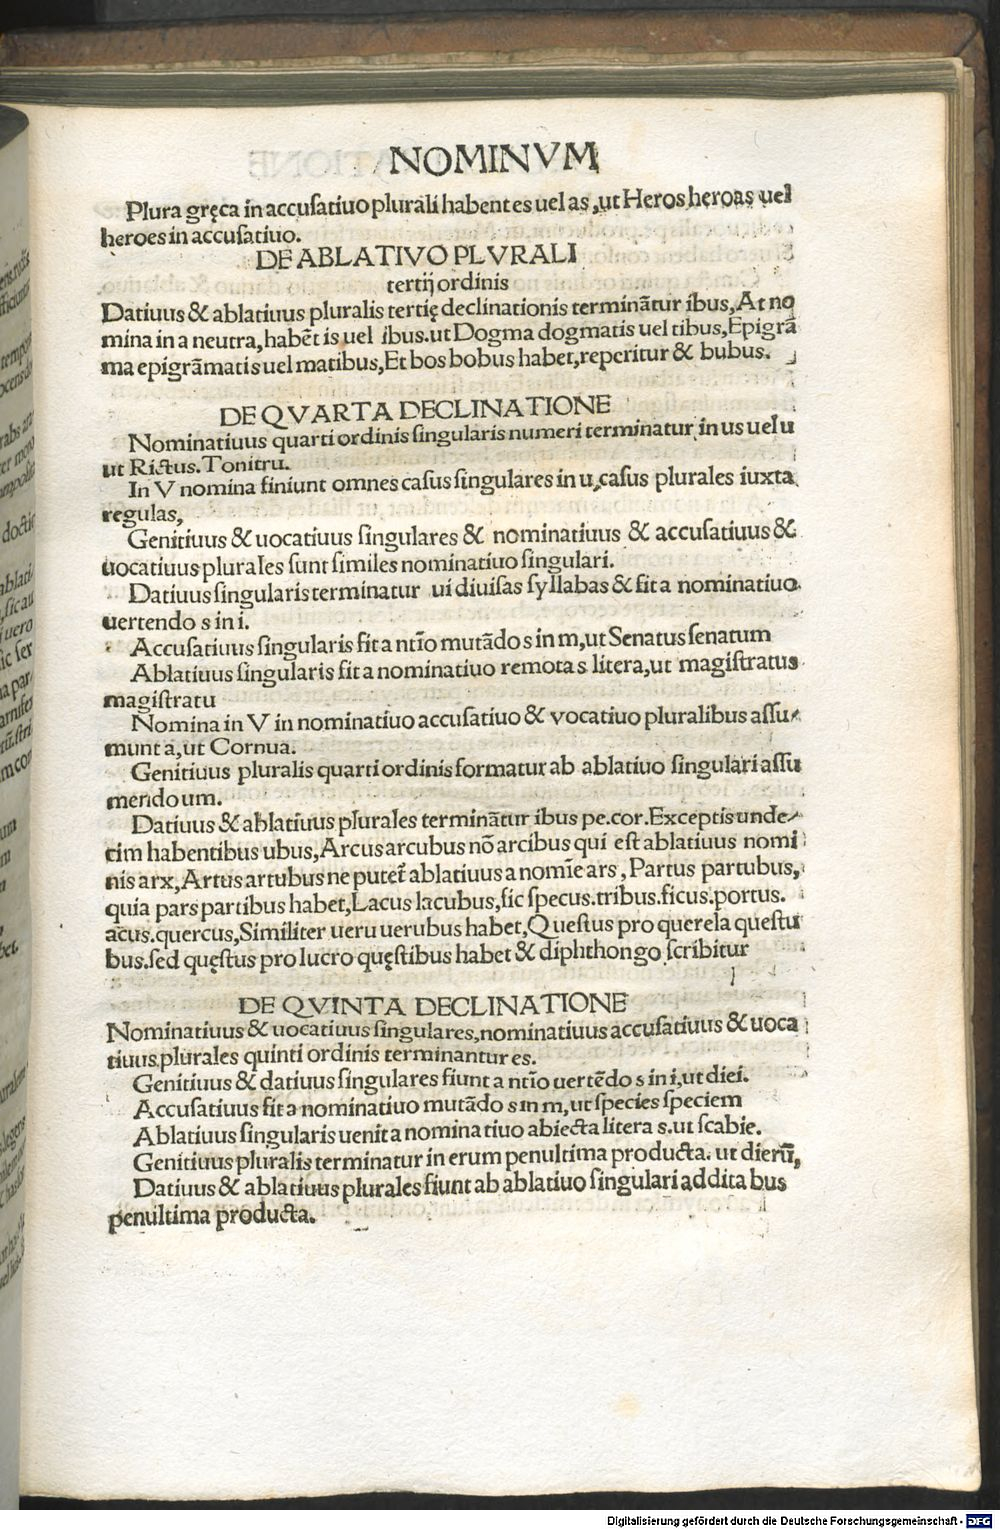 NOMINVM
Plura gręca in accusatiuo plurali habent es uel as, ut Heros heroas uel
heroes in accusatiuo.
DE ABLATIVO PLVRALI
tertij ordinis
Datiuus & ablatiuus pluralis tertię declinationis terminãtur ibus, At no
mina in a neutra, habẽt is uel ibus. ut Dogma dogmatis uel tibus, Epigrã
ma epigrãmatis uel matibus, Et bos bobus habet, reperitur & bubus.
DE QVARTA DECLINATIONE
Nominatiuus quarti ordinis singularis numeri terminatur in us uel u
ut Rictus. Tonitru.
In V nomina finiunt omnes casus singulares in u, casus plurales iuxta
regulas,
Genitiuus & uocatiuus singulares & nominatiuus & accusatiuus &
uocatiuus plurales sunt similes nominatiuo singulari.
Datiuus singularis terminatur ui diuisas syllabas & fit a nominatiuo
uertendo s in i.
Accusatiuus singularis fit a ntĩo mutãdo s in m, ut Senatus senatum
Ablatiuus singularis fit a nominatiuo remota s litera, ut magistratus
magistratu
Nomina in V in nominatiuo accusatiuo & vocatiuo pluralibus assu-
munt a, ut Cornua.
Genitiuus pluralis quarti ordinis formatur ab ablatiuo singulari assu
mendo um.
Datiuus & ablatiuus plurales terminãtur ibus pe. cor. Exceptis unde-
cim habentibus ubus, Arcus arcubus nõ arcibus qui est ablatiuus nomi
nis arx, Artus artubus ne putet̃ ablatiuus a nomĩe ars, Partus partubus,
quia pars partibus habet, Lacus lacubus, sic specus. tribus. ficus. portus.
acus. quercus, Similiter ueru uerubus habet, Questus pro querela questu
bus. sed quęstus pro lucro quęstibus habet & diphthongo scribitur
DE QVINTA DECLINATIONE
Nominatiuus & uocatiuus singulares, nominatiuus accusatiuus & uoca
tiuus plurales quinti ordinis terminantur es.
Genitiuus & datiuus singulares fiunt a ntĩo uertẽdo s in i, ut diei.
Accusatiuus fit a nominatiuo mutãdo s in m, ut species speciem
Ablatiuus singularis uenit a nominatiuo abiecta litera s. ut scabie.
Genitiuus pluralis terminatur in erum penultima producta. ut dierũ,
Datiuus & ablatiuus plurales fiunt ab ablatiuo singulari addita bus
penultima producta.
Digitalisierung gefördert durch die Deutsche Forschungsgemeinschaft - DFG